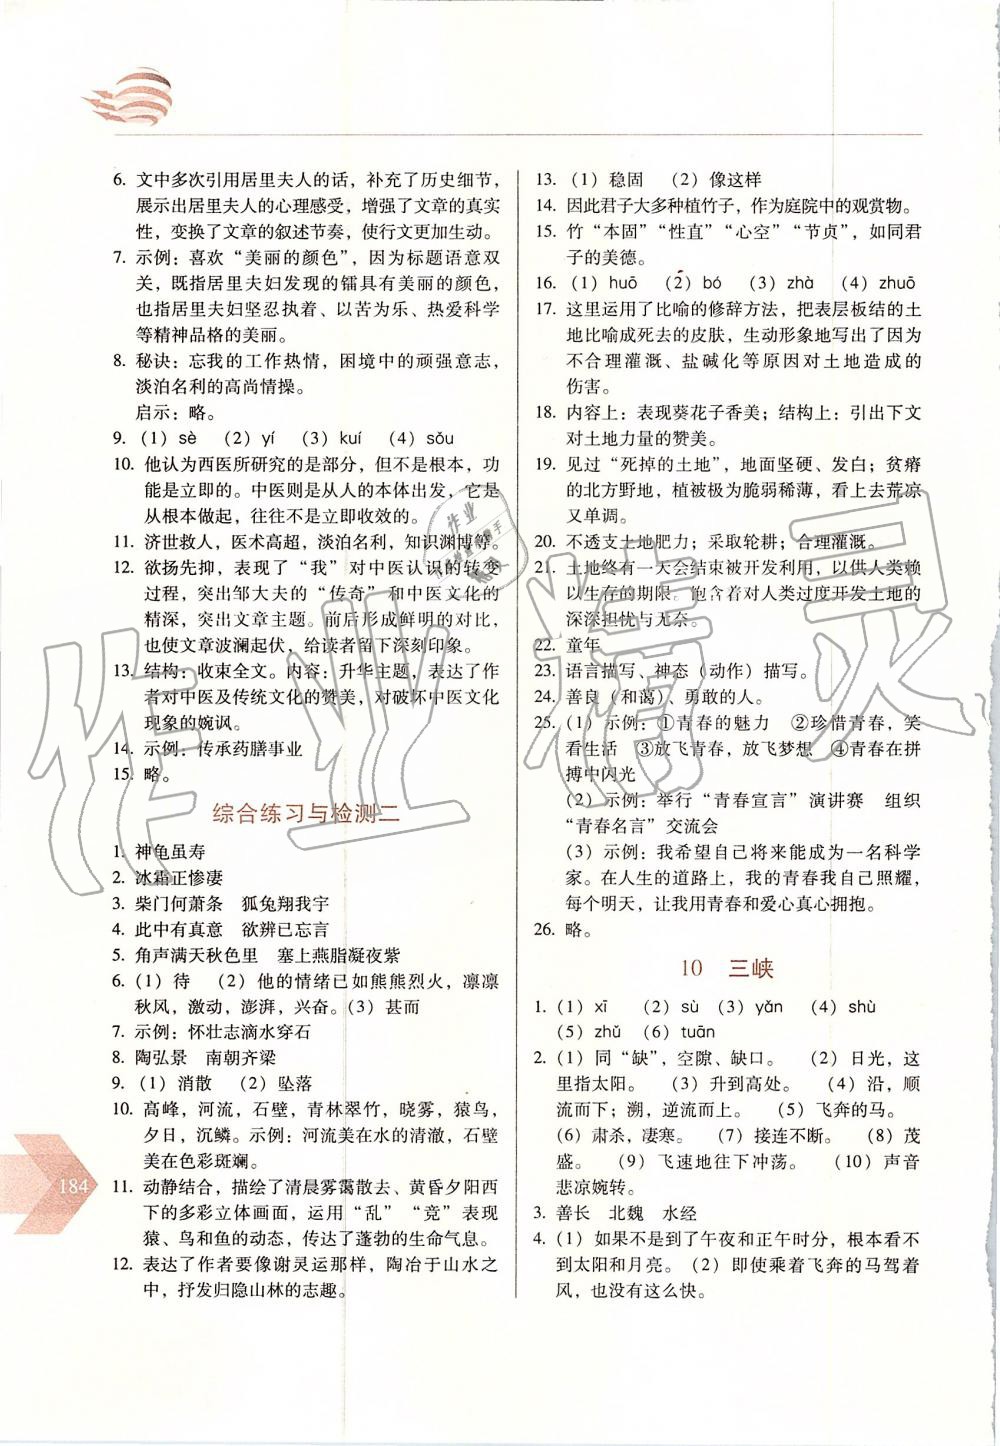 6. 文中多次引用居里夫人的话，补充了历史细节，
展示出居里夫人的心理感受，增强了文章的真实
性，变换了文章的叙述节奏，使行文更加生动。
7. 示例：喜欢“美丽的颜色”，因为标题语意双
关，既指居里夫妇发现的镭具有美丽的颜色，
也指居里夫妇坚忍执着、以苦为乐、热爱科学
等精神品格的美丽。
8. 秘诀：忘我的工作热情，困境中的顽强意志，
淡泊名利的高尚情操。
启示：略。
9. （1）sè （2）yí （3）kuí （4）sǒu
10. 他认为西医所研究的是部分，但不是根本，功
能是立即的。中医则是从人的本体出发，它是
从根本做起，往往不是立即收效的。
11. 济世救人，医术高超，淡泊名利，知识渊博等。
12. 欲扬先抑，表现了“我”对中医认识的转变
过程，突出邹大夫的“传奇”和中医文化的
精深，突出文章主题。前后形成鲜明的对比，
也使文章波澜起伏，给读者留下深刻印象。
13. 结构：收束全文。内容：升华主题，表达了作
者对中医及传统文化的赞美，对破坏中医文化
现象的婉讽。
14. 示例：传承药膳事业
15. 略。
综合练习与检测二
1. 神龟虽寿
2. 冰霜正惨凄
3. 柴门何萧条 狐兔翔我宇
4. 此中有真意 欲辨已忘言
5. 角声满天秋色里 塞上燕脂凝夜紫
6. （1）待 （2）他的情绪已如熊熊烈火，凛凛
秋风，激动，澎湃，兴奋。（3）甚而
7. 示例：怀壮志滴水穿石
8. 陶弘景 南朝齐梁
9. （1）消散 （2）坠落
10. 高峰，河流，石壁，青林翠竹，晓雾，猿鸟，
夕日，沉鳞。示例：河流美在水的清澈，石壁
美在色彩斑斓。
11. 动静结合，描绘了清晨雾霭散去、黄昏夕阳西
下的多彩立体画面，运用“乱”“竞”表现
猿、鸟和鱼的动态，传达了蓬勃的生命气息。
12. 表达了作者要像谢灵运那样，陶冶于山水之
中，抒发归隐山林的志趣。
184
13. （1）稳固 （2）像这样
14. 因此君子大多种植竹子，作为庭院中的观赏物。
15. 竹“本固”“性直”“心空”“节贞”，如同君
子的美德。
16. （1）huō （2）bó （3）zhà （4）zhuō
17. 这里运用了比喻的修辞方法，把表层板结的土
地比喻成死去的皮肤，生动形象地写出了因为
不合理灌溉、盐碱化等原因对土地造成的
伤害。
18. 内容上：表现葵花子香美；结构上：引出下文
对土地力量的赞美。
19. 见过“死掉的土地”，地面坚硬、发白；贫瘠
的北方野地，植被极为脆弱稀薄，看上去荒凉
又单调。
20. 不透支土地肥力；采取轮耕；合理灌溉。
21. 土地终有一天会结束被开发利用，以供人类赖
以生存的期限。饱含着对人类过度开发土地的
深深担忧与无奈。
22. 童年
23. 语言描写、神态（动作）描写。
24. 善良（和蔼）、勇敢的人。
25. （1）示例：①青春的魅力 ②珍惜青春，笑
看生活 ③放飞青春，放飞梦想 ④青春在拼
搏中闪光
（2）示例：举行“青春宣言”演讲赛 组织
“青春名言”交流会
（3）示例：我希望自己将来能成为一名科学
家。在人生的道路上，我的青春我自己照耀，
每个明天，让我用青春和爱心真心拥抱。
26. 略。
10 三峡
1. （1）xī （2）sù （3）yǎn （4）shù
（5）zhǔ （6）tuān
2. （1）同“缺”，空隙、缺口。 （2）日光，这
里指太阳。 （3）升到高处。 （4）沿，顺
流而下；溯，逆流而上。 （5）飞奔的马。
（6）肃杀，凄寒。 （7）接连不断。 （8）茂
盛。 （9）飞速地往下冲荡。 （10）声音
悲凉婉转。
3. 善长 北魏 水经
4. （1）如果不是到了午夜和正午时分，根本看不
到太阳和月亮。（2）即使乘着飞奔的马驾着
风，也没有这么快。
作业精灵